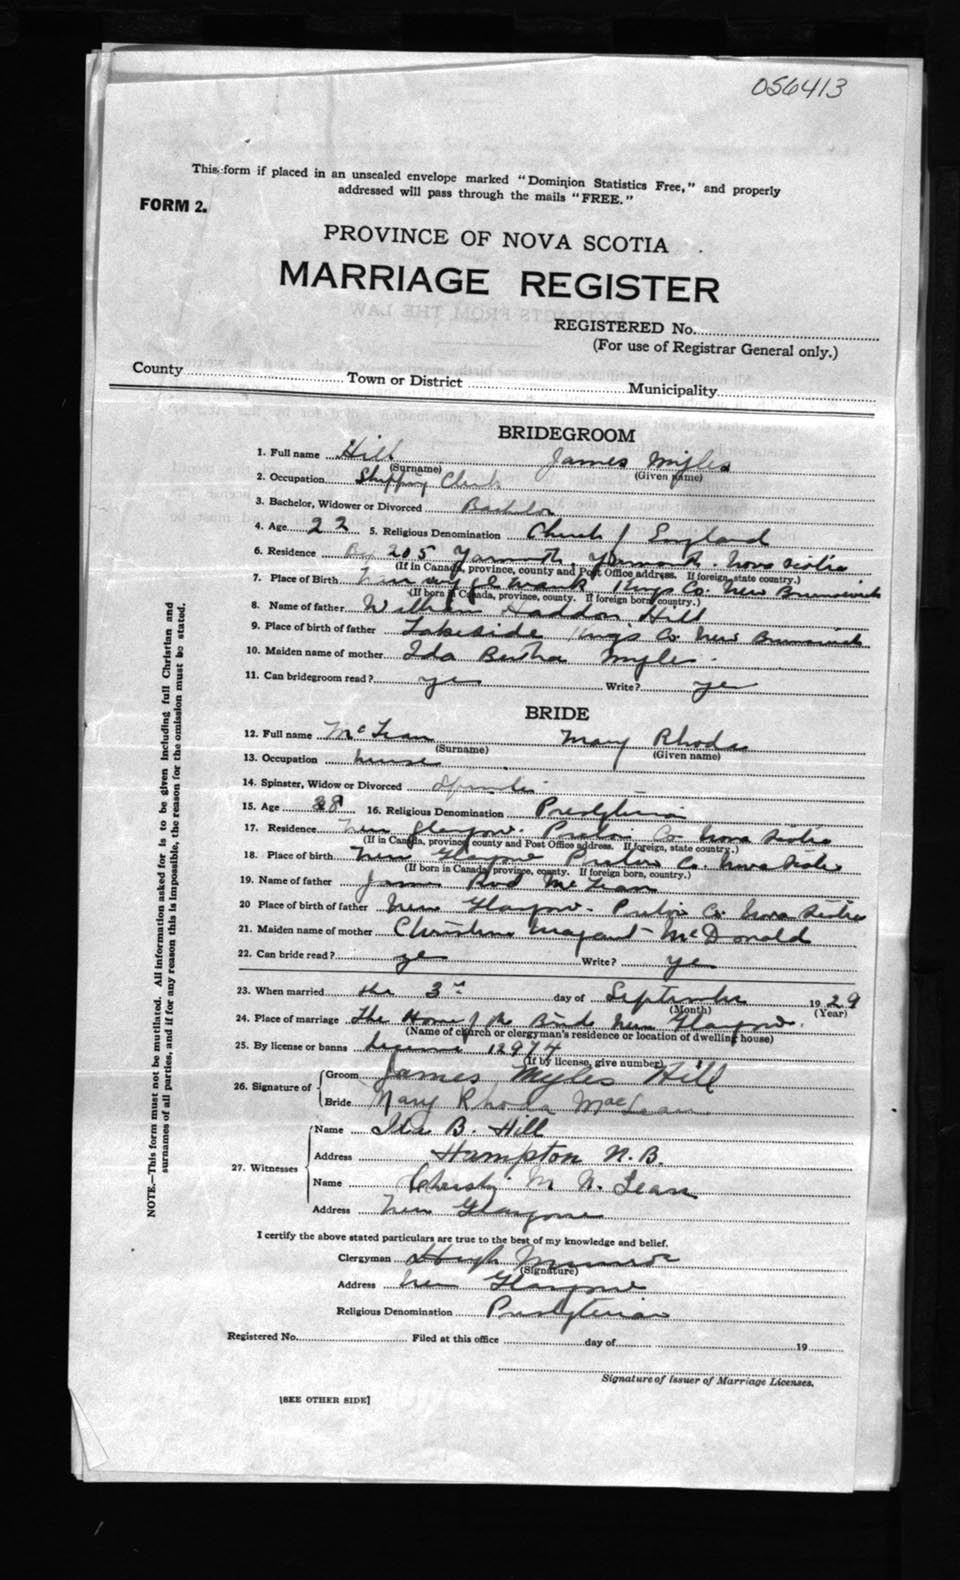 056413
This form if placed in an unsealed envelope marked "Dominion Statistics Free," and properly
addressed will pass through the mails "FREE."
FORM 2.
PROVINCE OF NOVA SCOTIA
MARRIAGE REGISTER
REGISTERED No.
(For use of Registrar General only.)
County Town or District Municipality
BRIDEGROOM
1. Full name Hill James Myles
(Surname) (Given name)
2. Occupation Shipping Clerk
3. Bachelor, Widower or Divorced Bachelor
4. Age 22 5. Religious Denomination Church of England
6. Residence Box 205 Yarmouth, Yarmouth. Nova Scotia
(If in Canada, province, county and Post Office address. If foreign, state country.)
7. Place of Birth Kings Co. New Brunswick
(If born in Canada, province, county. If foreign born country.)
8. Name of father William Haddon Hill
9. Place of birth of father Lakeside Kings Co New Brunswick
10. Maiden name of mother Ida Bertha Myles.
11. Can bridegroom read? yes Write? yes
BRIDE
12. Full name McLean Mary Rhoda
(Surname) (Given name)
13. Occupation nurse
14. Spinster, Widow or Divorced Spinster
15. Age 28 16. Religious Denomination Presbyterian
17. Residence New Glasgow. Pictou Co Nova Scotia
(If in Canada, province county and Post Office address. If foreign, state country.)
18. Place of birth New Glasgow Pictou Co. Nova Scotia
(If born in Canada, province, county. If foreign born, country.)
19. Name of father James Rod McLean
20 Place of birth of father New Glasgow. Pictou Co Nova Scotia
21. Maiden name of mother Christine Margaret McDonald
22. Can bride read? yes Write? yes
23. When married the 3rd day of September 1929
(Month) (Year)
24. Place of marriage The Home of the Bride New Glasgow.
(Name of church or clergyman's residence or location of dwelling house)
25. By license or banns License 12974
(If by license, give number)
26. Signature of Groom James Myles Hill
Bride Mary Rhoda MacLean
27. Witnesses Name Ida B. Hill
Address Hampton N.B.
Name M Lean
Address New Glasgow
I certify the above stated particulars are true to the best of my knowledge and belief.
Clergyman Hugh Munroe
(Signature)
Address New Glasgow
Religious Denomination Presbyterian
Registered No. Filed at this office day of 19
Signature of Issuer of Marriage Licenses.
[SEE OTHER SIDE]
NOTE.—This form must not be mutilated. All information asked for is to be given including full Christian and
surnames of all parties, and if for any reason this is impossible, the reason for the omission must be stated.